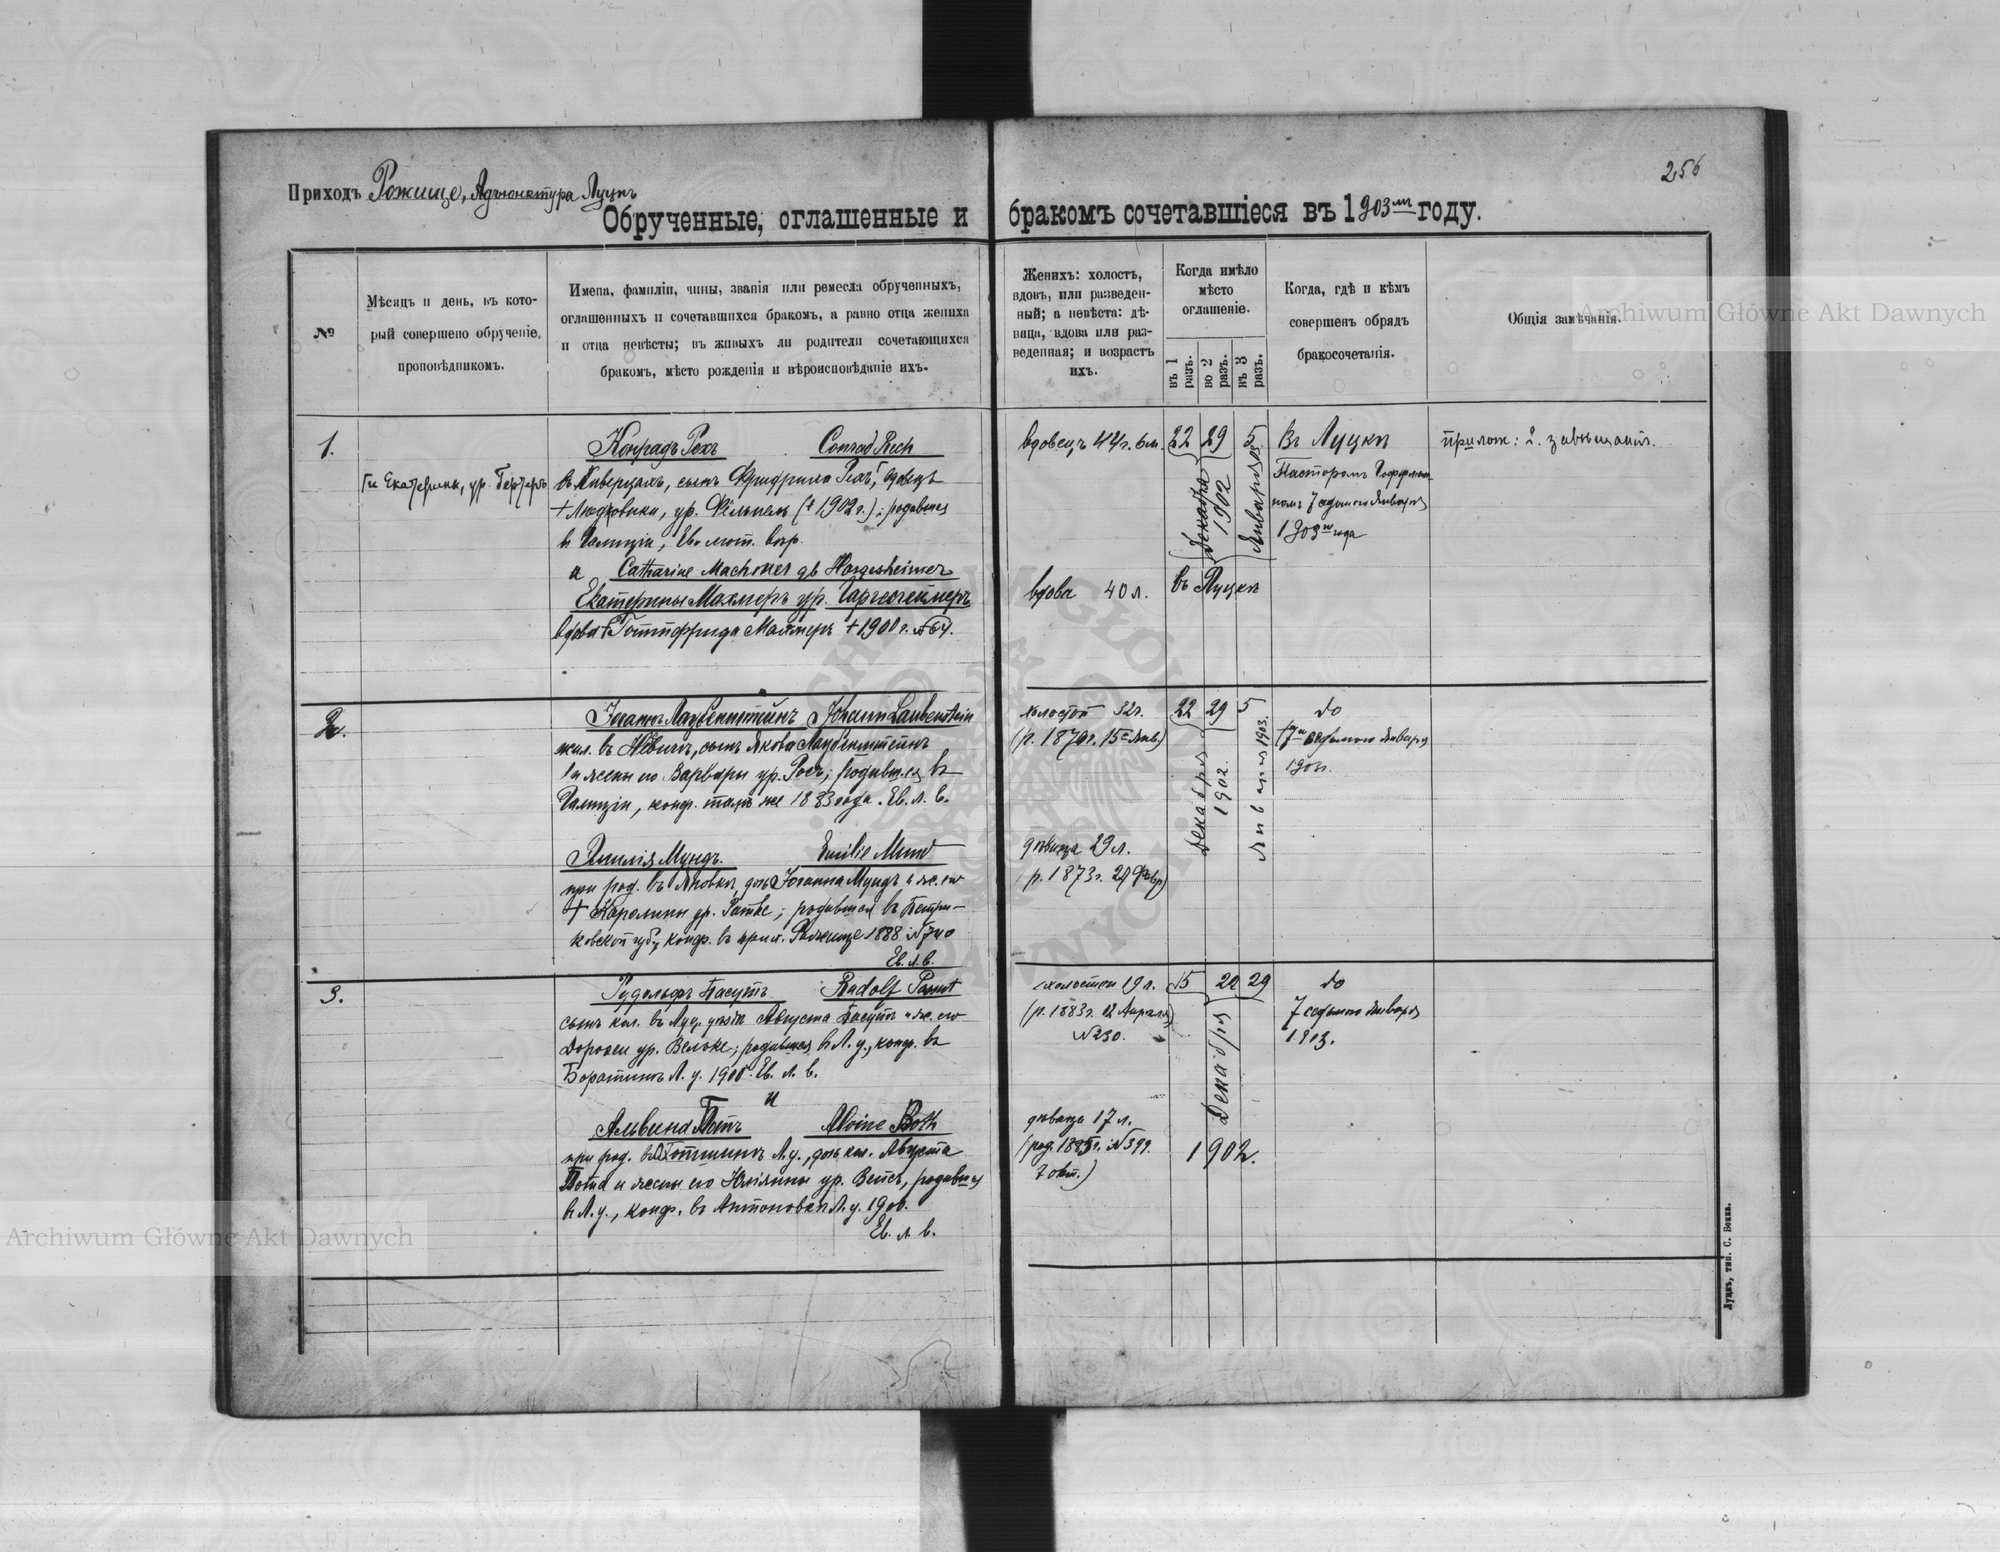 256
Приходъ Рожище, Адъюнктура Луцкъ
Обрученные, оглашенные и бракомъ сочетавшіеся въ 1903-мъ году.
№
Мѣсяцъ и день, въ кото-
рый совершено обрученіе,
проповѣдникомъ.
Имена, фамиліи, чины, званія или ремесла обрученныхъ,
оглашенныхъ и сочетавшихся бракомъ, а равно отца жениха
и отца невѣсты; въ живыхъ ли родители сочетающихся
бракомъ, мѣсто рожденія и вѣроисповѣданіе ихъ.
Женихъ: холостъ,
вдовъ, или разведен-
ный; а невѣста: дѣ-
вица, вдова или раз-
веденная; и возрастъ
ихъ.
Когда имѣло
мѣсто
оглашеніе.
въ 1 разъ.
во 2 разъ.
въ 3 разъ.
Когда, гдѣ и кѣмъ
совершенъ обрядъ
бракосочетанія.
Общія замѣчанія.
1.
и Екатерины, ур. Гертеръ
Конрадъ Рехъ Conrad Rech
въ Киверцахъ, сынъ Фридриха Рехъ, вдовецъ
+ Людовики, ур. (+ 1902 г.); родився
в Галиціи, Ев. лют. вѣр.
и Catharine Machmer geb Hargesheimer
Екатерины Махмеръ ур. Гаргесгеймеръ
вдова Готтфрида Махмеръ + 1900 г. № 64.
вдовецъ 44 г. 6 м.
вдова 40 л.
22 29 5
Декабря 1902
Января
въ Луцкѣ
Въ Луцкѣ
Пасторомъ
7 седьмого Января
1903 го года
прилож: 2.
2.
Іоганнъ Лаубенштейнъ Johann Laubenstein
жил. въ сынъ Якова Лаубенштейнъ
и жены его Варвары ур. Росъ; родився въ
Галиціи, конф. тамъ же 1883 года. Ев. л. в.
Эмилія Мундъ. Emilie Mund
при род. въ Яновкѣ, дочь Іоганна Мундъ и ж. его
+ Каролины ур. Ратке; родившая въ Петри-
ковской губ., конф. въ прих. Рожище 1888 № 740
Ев. л. в.
холостой 32 г.
(р. 1870 г. 15 Янв)
дѣвица 29 л.
р. 1873 г. 24 Февр)
22 29 5
Декабря 1902.
Января 1903.
do
7 седьмого Января
1903 г.
3.
Рудольфъ Пасутъ Rudolf Passut
сынъ кол. въ Луц. уѣздѣ Августа Пасутъ и ж. его
Доротеи ур. Вельке; родився в Л. у., конф. въ
Боратинѣ Л. у. 1900. Ев. л. в.
и
Альвина Ротъ Alvine Roth
при род. въ Л. у., дочь кол. Августа
Рота и жены его Юліяны ур. Вейсъ, родивш.
в Л. у., конф. въ Антоновкѣ Л. у. 1900.
Ев. л. в.
холостой 19 л.
(р. 1883 г. 12 Апрѣля)
№ 230.
дѣвица 17 л.
(род. 1885 г. № 399.
7 окт.)
15 22 29
Декабря
1902.
do
7 седьмого Января
1903.
Луцкъ, тип. С. Бонка.
Archiwum Główne Akt Dawnych
Archiwum Główne Akt Dawnych